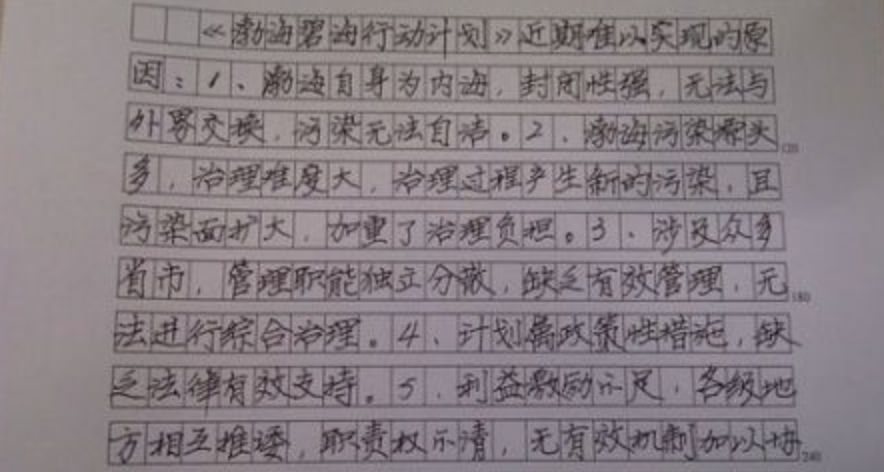 《渤海碧海行动计划》近期难以实现的原
因：1、渤海自身为内海，封闭性强，无法与
外界交换，污染无法自洁。2、渤海污染源头
多，治理难度大，治理过程产生新的污染，且
污染面扩大，加重了治理负担。3、涉及众多
省市，管理职能独立分散，缺乏有效管理，无
法进行综合治理。4、计划属政策性措施，缺
乏法律有效支持。5、利益激励不足，各级地
方相互推诿，职责权不清，无有效机制加以协